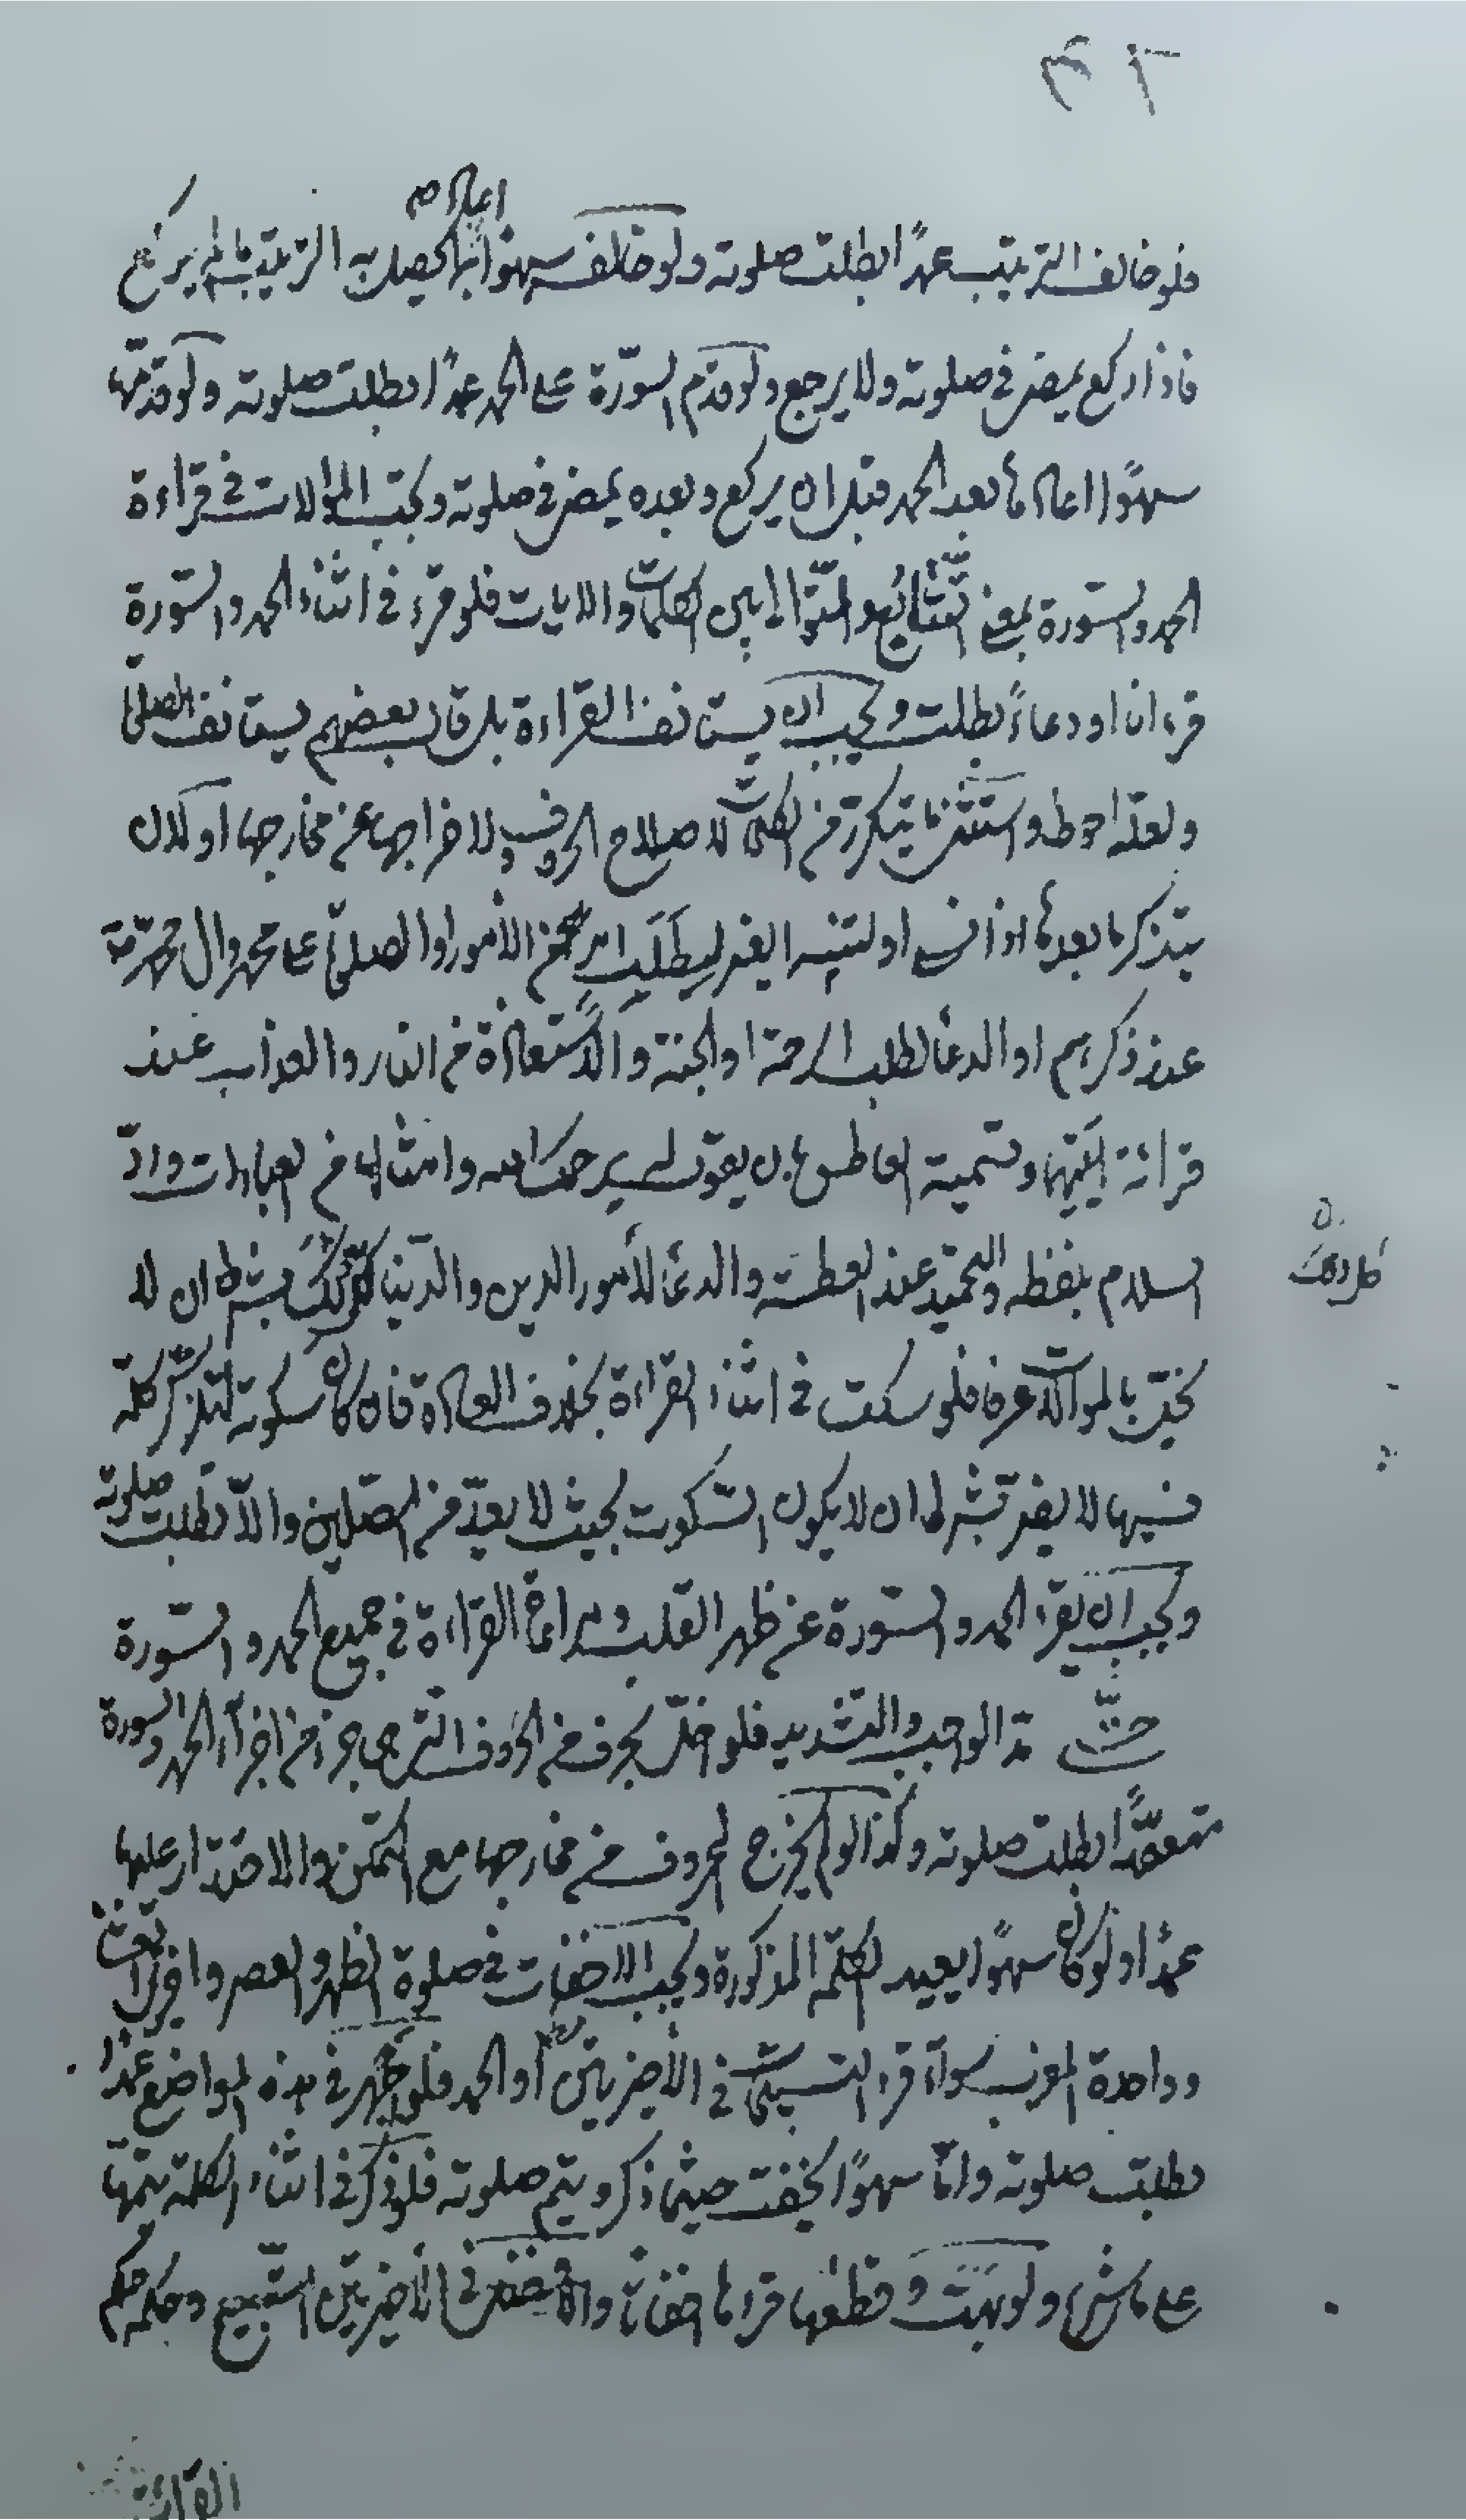 اعادها
فلو خالف الترتيب عمدًا بطلت صلوته ولو خالف سهوًا بما يحصل به الترتيب ما لم يركع
فاذا ركع يمضى فى صلوته ولا يرجع ولو قدم السّورة على الحمد عمدًا بطلت صلوته ولو قدمّها
سهوًا اعادها بعد الحمد قبل ان يركع وبعده يمضى فى صلوته ويجب الموالات فى قراءة
الحمد والسّورة بمعنى التّتابع والتّوالى بين الكلمات والايات فلو قرء فى اثناء الحمد والسّورة
قرءانا او دعاءً بطلت ويجب ان يستانف القراءة بل قال بعضهم يستانف الصلوة
ولعلّه احوط واستثنى ما يتكرّر من الكلمات لاصلاح الحروف ولاخراجها عن مخارجها او لان
يتذكر ما بعدها اذا نسى او لتنبيه الغير ليطلب امر من الأمور او الصلوة على محمد وال محمد
عند ذكرهم او الدعا لطلب الرحمة او الجنة والاستعاذة من النار والعذاب عند
قرائة ايتيهما وتسمية العاطس بان يقول له يرحمك الله وامثالها من العبادات واردّ
السلام بلفظه والتحميد عند العطسه والدعا لأمور الدين والدّنيا كلّ ذلك بشرط ان لا
كل ذلك
يخلّ بالموالات عرفا فلو سكت فى اثناء القراءة بخلاف العادة فان كان سكوته لتذكر كلمة
نسيها لا يضر بشرط ان لا يكون السّكوت بحيث لا يعدّ من المصلّين والاّ بطلت صلوته
ويجب ان يقرء الحمد والسّورة عن ظهر القلب القراءة فى جميع الحمد والسّورة
حتّى مد الواجب والتشديد فلو اخلّ بحرف من الحروف التى هى جزء من اجزآء الحمد والسورة
متعمّدًا بطلت صلوته وكذا لو لم يخرج الحروف من مخارجها مع التمكّن والاقتدار عليها
عمدًا ولو كان سهوًا يعيد الكلمة المذكورة ويجب الاخفات فى صلوة الظهر والعصر واخيرتى
وواحدة المغرب سوآء قرء التسبيحات فى الأخيرتين او الحمد فلو جهر فى هذه المواضع عمدًا
بطلت صلوته وامّا سهوًا يخفت حيثما ذكر ويتم صلوته فلو ذكر فى اثناء الكلمة يتمّها
على ولو وقطعها قراها اخفاتًا والافضل فى الأخيرتين التّسبيح وحكمه حكم
القرائة